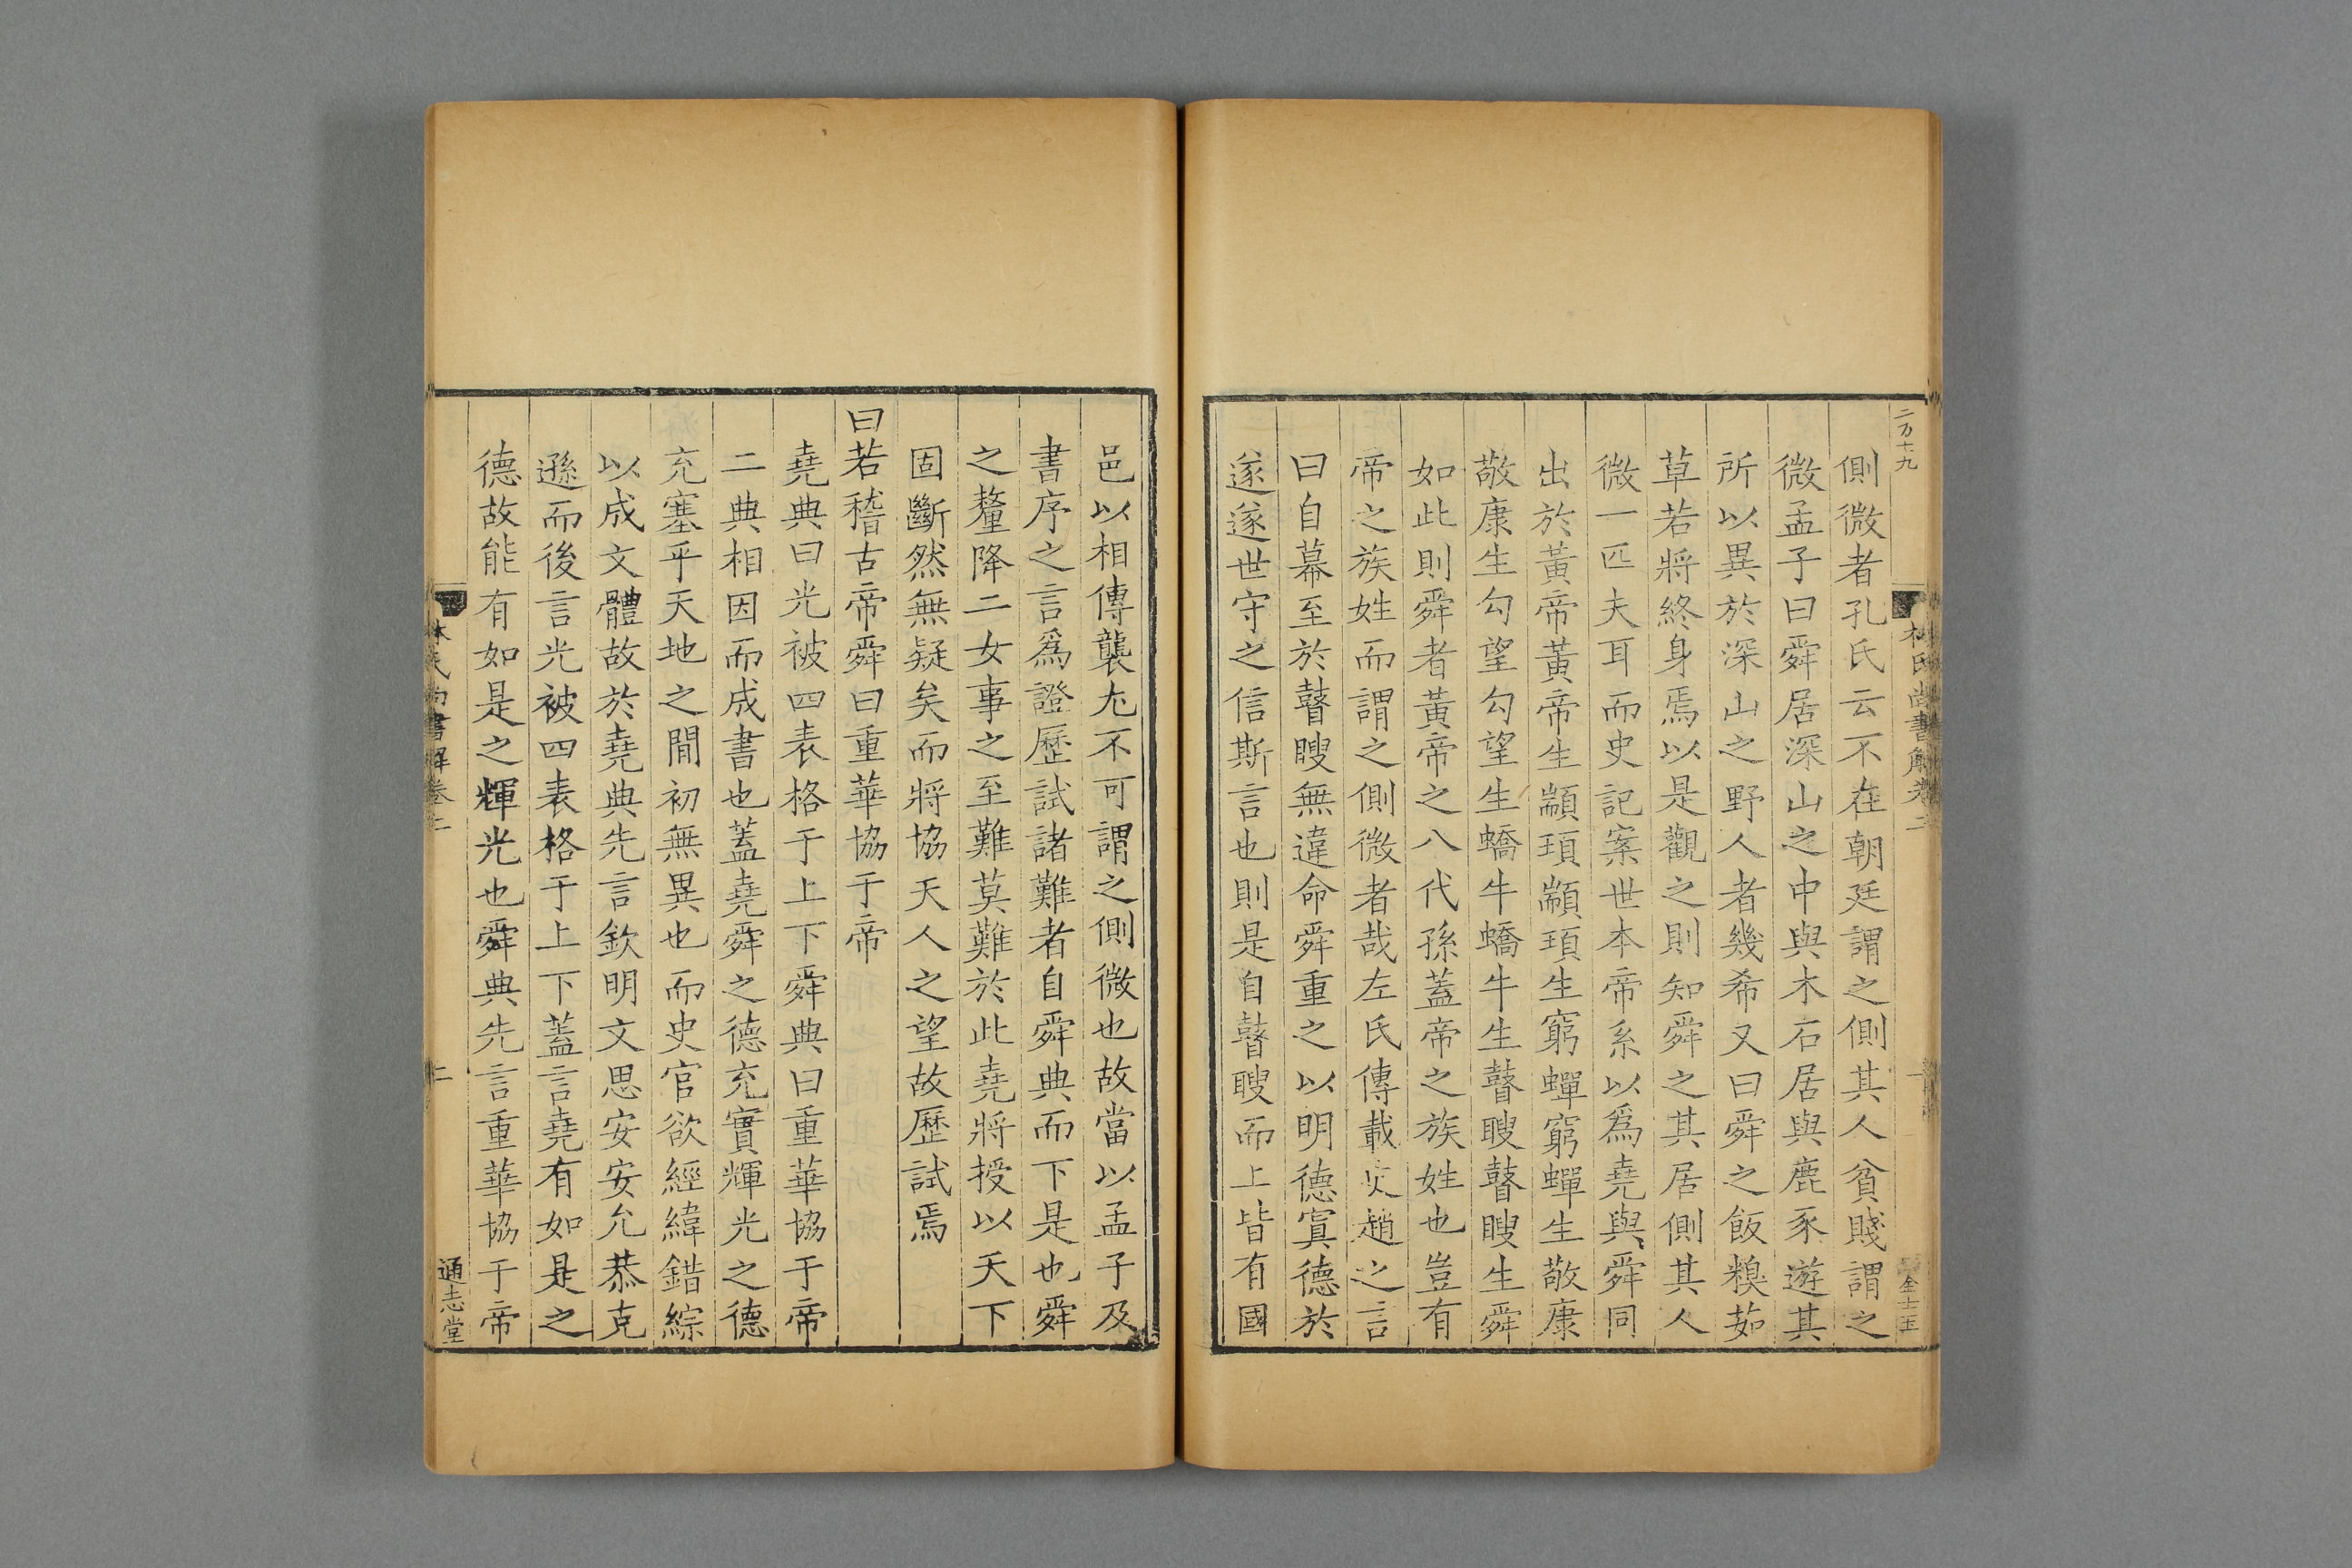 二万七十九
林氏尚書解卷二
一
金士玉
側微者孔氏云不在朝廷謂之側其人貧賤謂之
微孟子曰舜居深山之中與木石居與鹿豕遊其
所以異於深山之野人者幾希又曰舜之飯糗茹
草若將終身焉以是觀之則知舜之其居側其人
微一匹夫耳而史記案世本帝系以爲堯與舜同
出於黃帝黃帝生顓頊顓頊生窮蟬窮蟬生敬康
敬康生勾望勾望生蟜牛蟜牛生瞽瞍瞽瞍生舜
如此則舜者黃帝之八代孫蓋帝之族姓也豈有
帝之族姓而謂之側微者哉左氏傳載史趙之言
曰自幕至於瞽瞍無違命舜重之以明德寘德於
遂遂世守之信斯言也則是自瞽瞍而上皆有國
邑以相傳襲尤不可謂之側微也故當以孟子及
書序之言爲證歷試諸難者自舜典而下是也舜
之釐降二女事之至難莫難於此堯將授以天下
固斷然無疑矣而將協天人之望故歷試焉
曰若稽古帝舜曰重華協于帝
堯典曰光被四表格于上下舜典曰重華協于帝
二典相因而成書也蓋堯舜之德充實輝光之德
充塞乎天地之閒初無異也而史官欲經緯錯綜
以成文體故於堯典先言欽明文思安安允恭克
遜而後言光被四表格于上下蓋言堯有如是之
德故能有如是之輝光也舜典先言重華協于帝
林氏尚書解卷二
二
通志堂